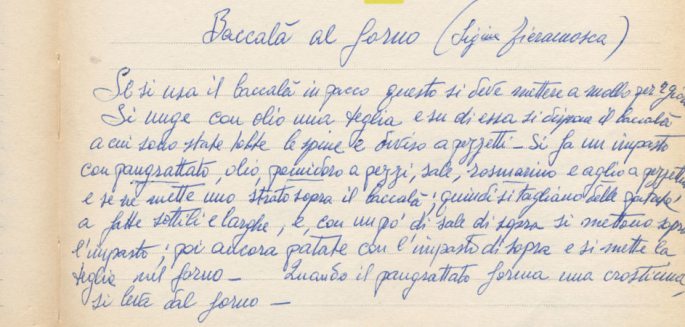 Baccalà al forno (Sig.na Fieramosca)
Se si usa il baccalà in pacco questo si deve mettere a mollo per 2 gior
Si unge con olio una teglia e su di essa si dispone il baccalà
a cui sono state tolte le spine e diviso a pezzetti - Si fa un impasto
con pangrattato, olio, pomidoro a pezzi, sale, rosmarino e aglio a pezzetti
e se ne mette uno strato sopra il baccalà; quindi si tagliano delle patate
a fette sottili e larghe, e, con un po' di sale di sopra si mettono sopra
l'impasto; poi ancora patate con l'impasto di sopra e si mette la
teglia nel forno - Quando il pangrattato forma una crosticina,
si leva dal forno -